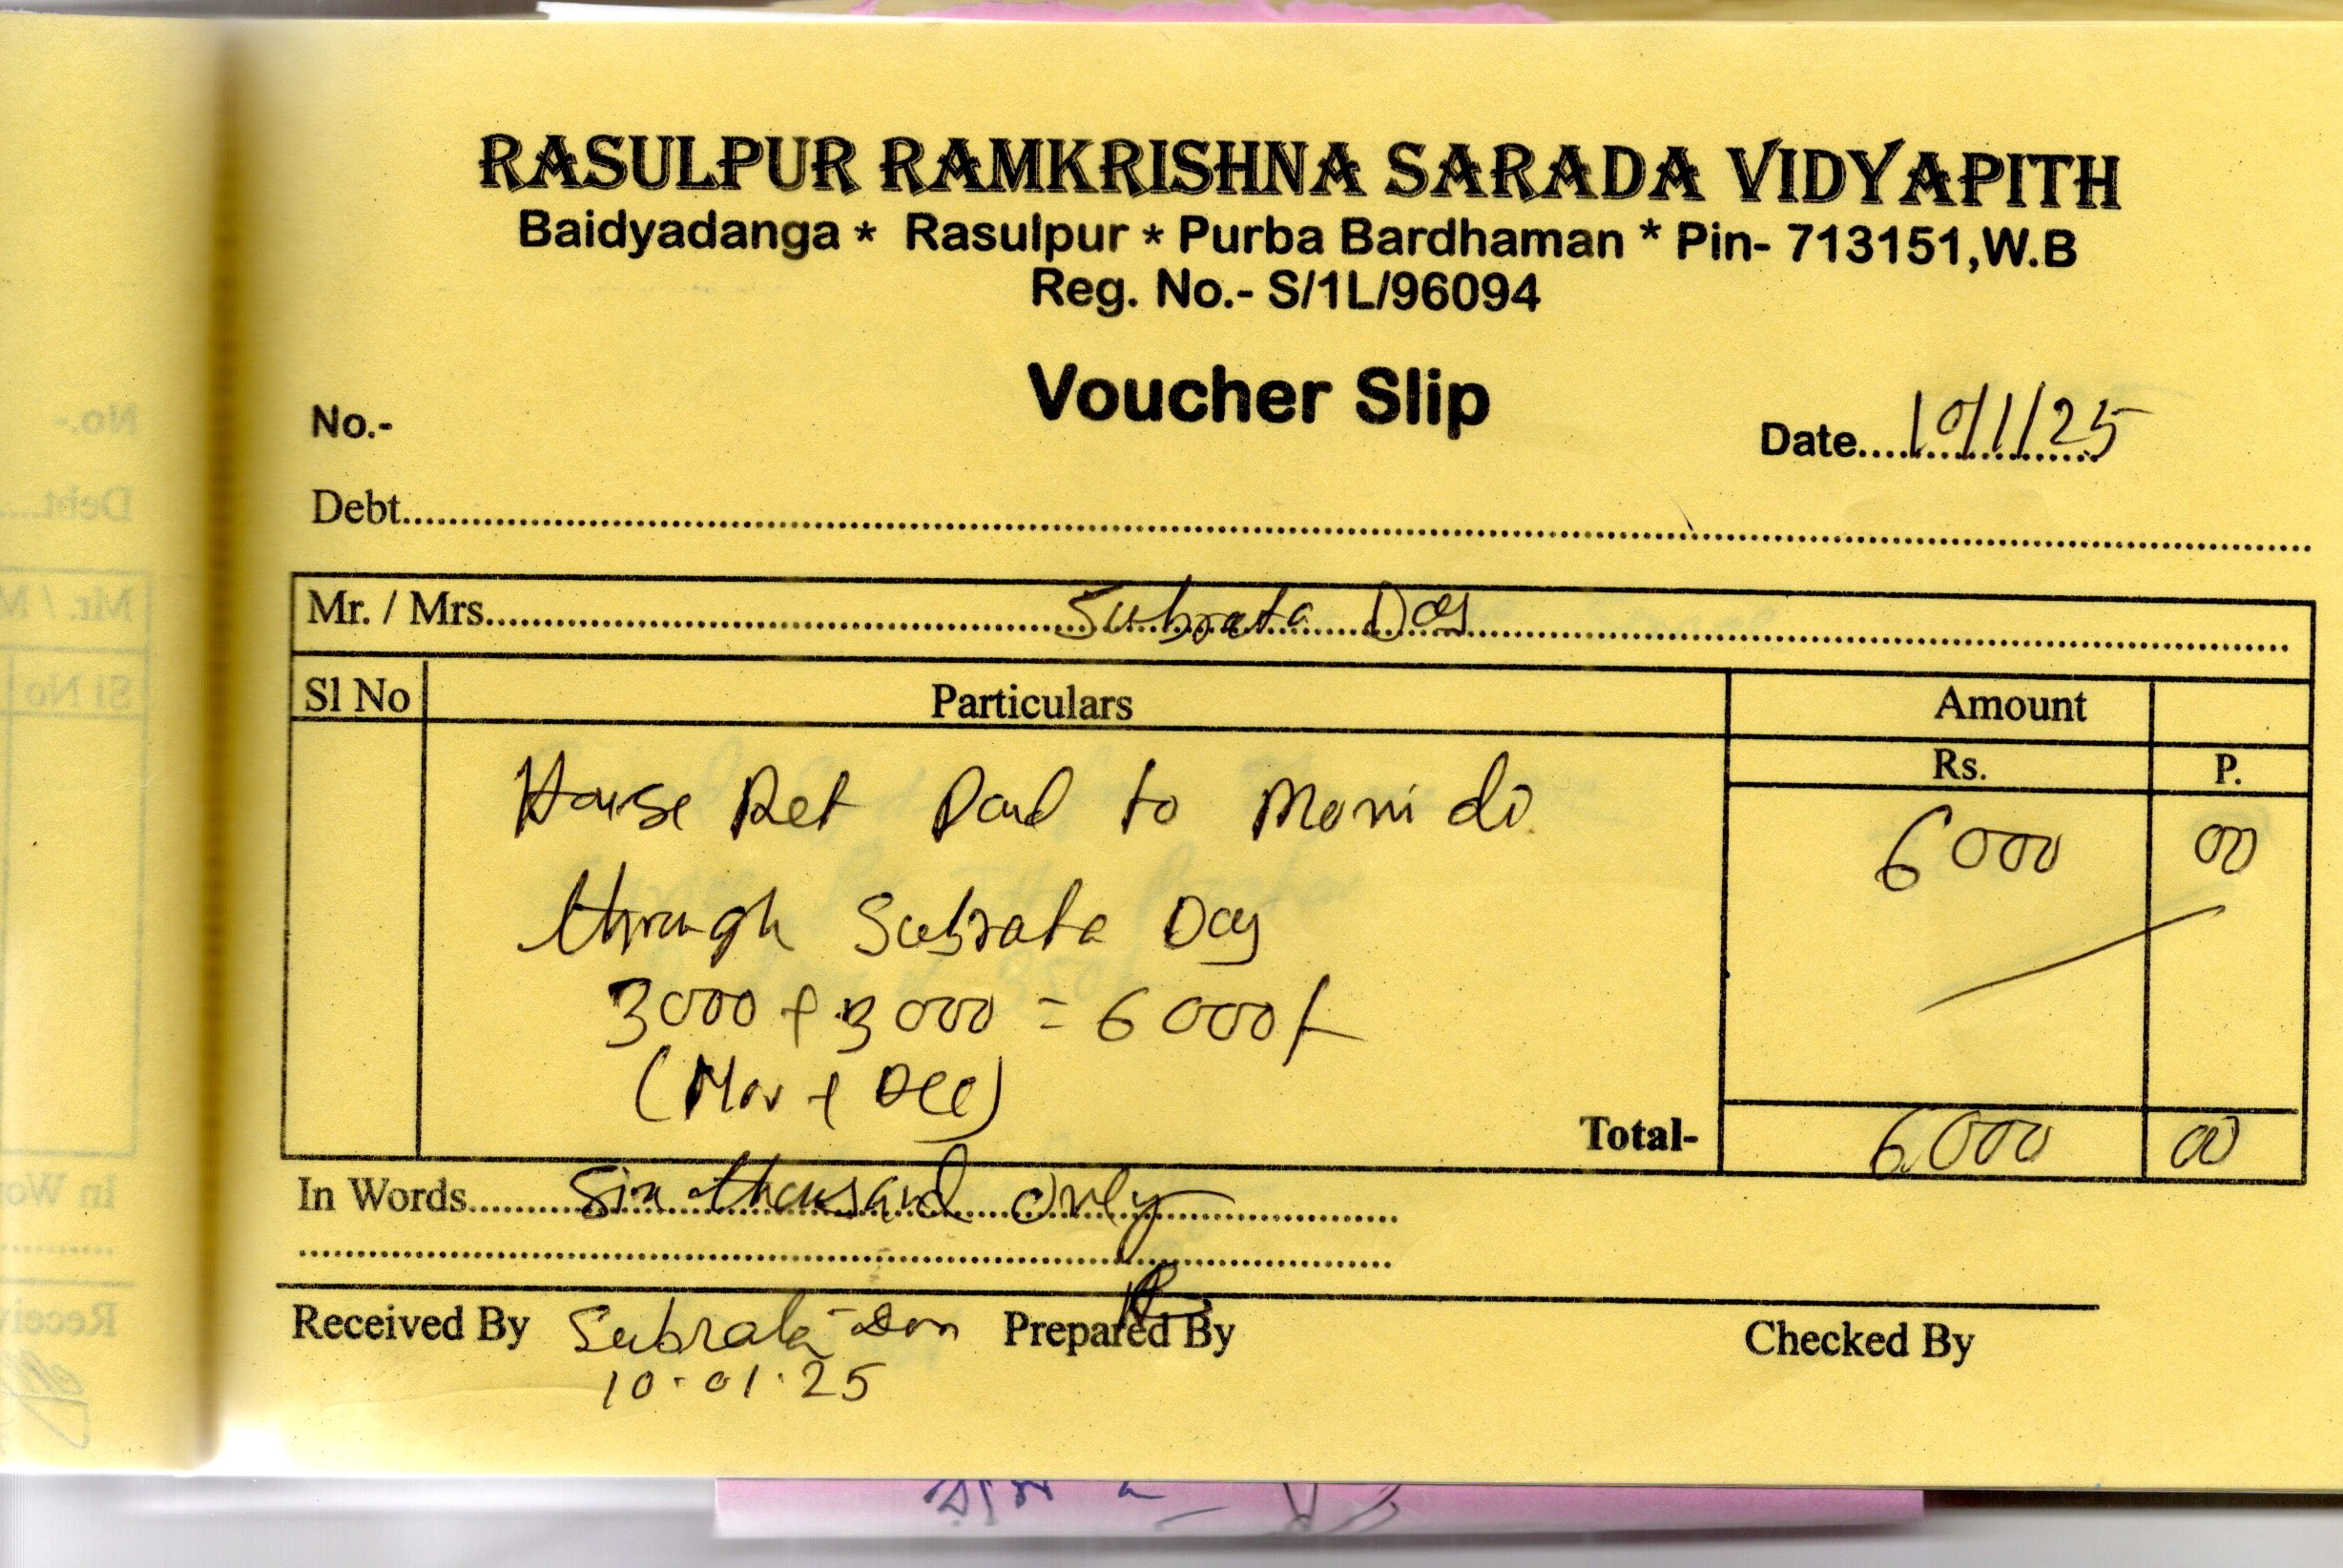 RASULPUR RAMKRISHNA SARADA VIDYAPITH
Baidyadanga * Rasulpur * Purba Bardhaman * Pin- 713151,W.B
Reg. No.- S/1L/96094
Voucher Slip
No.-
Date....10/1/25
Debt
Mr. / Mrs. Subrata Das
Sl No Particulars Amount
Rs. P.
House Ret Paid to Moni di 6000 00
through Subrata Das
3000 + 3000 = 6000/-
(Nov + Dec)
Total- 6000 00
In Words Six thousand only
Received By Subrata Das Prepared By Checked By
10.01.25